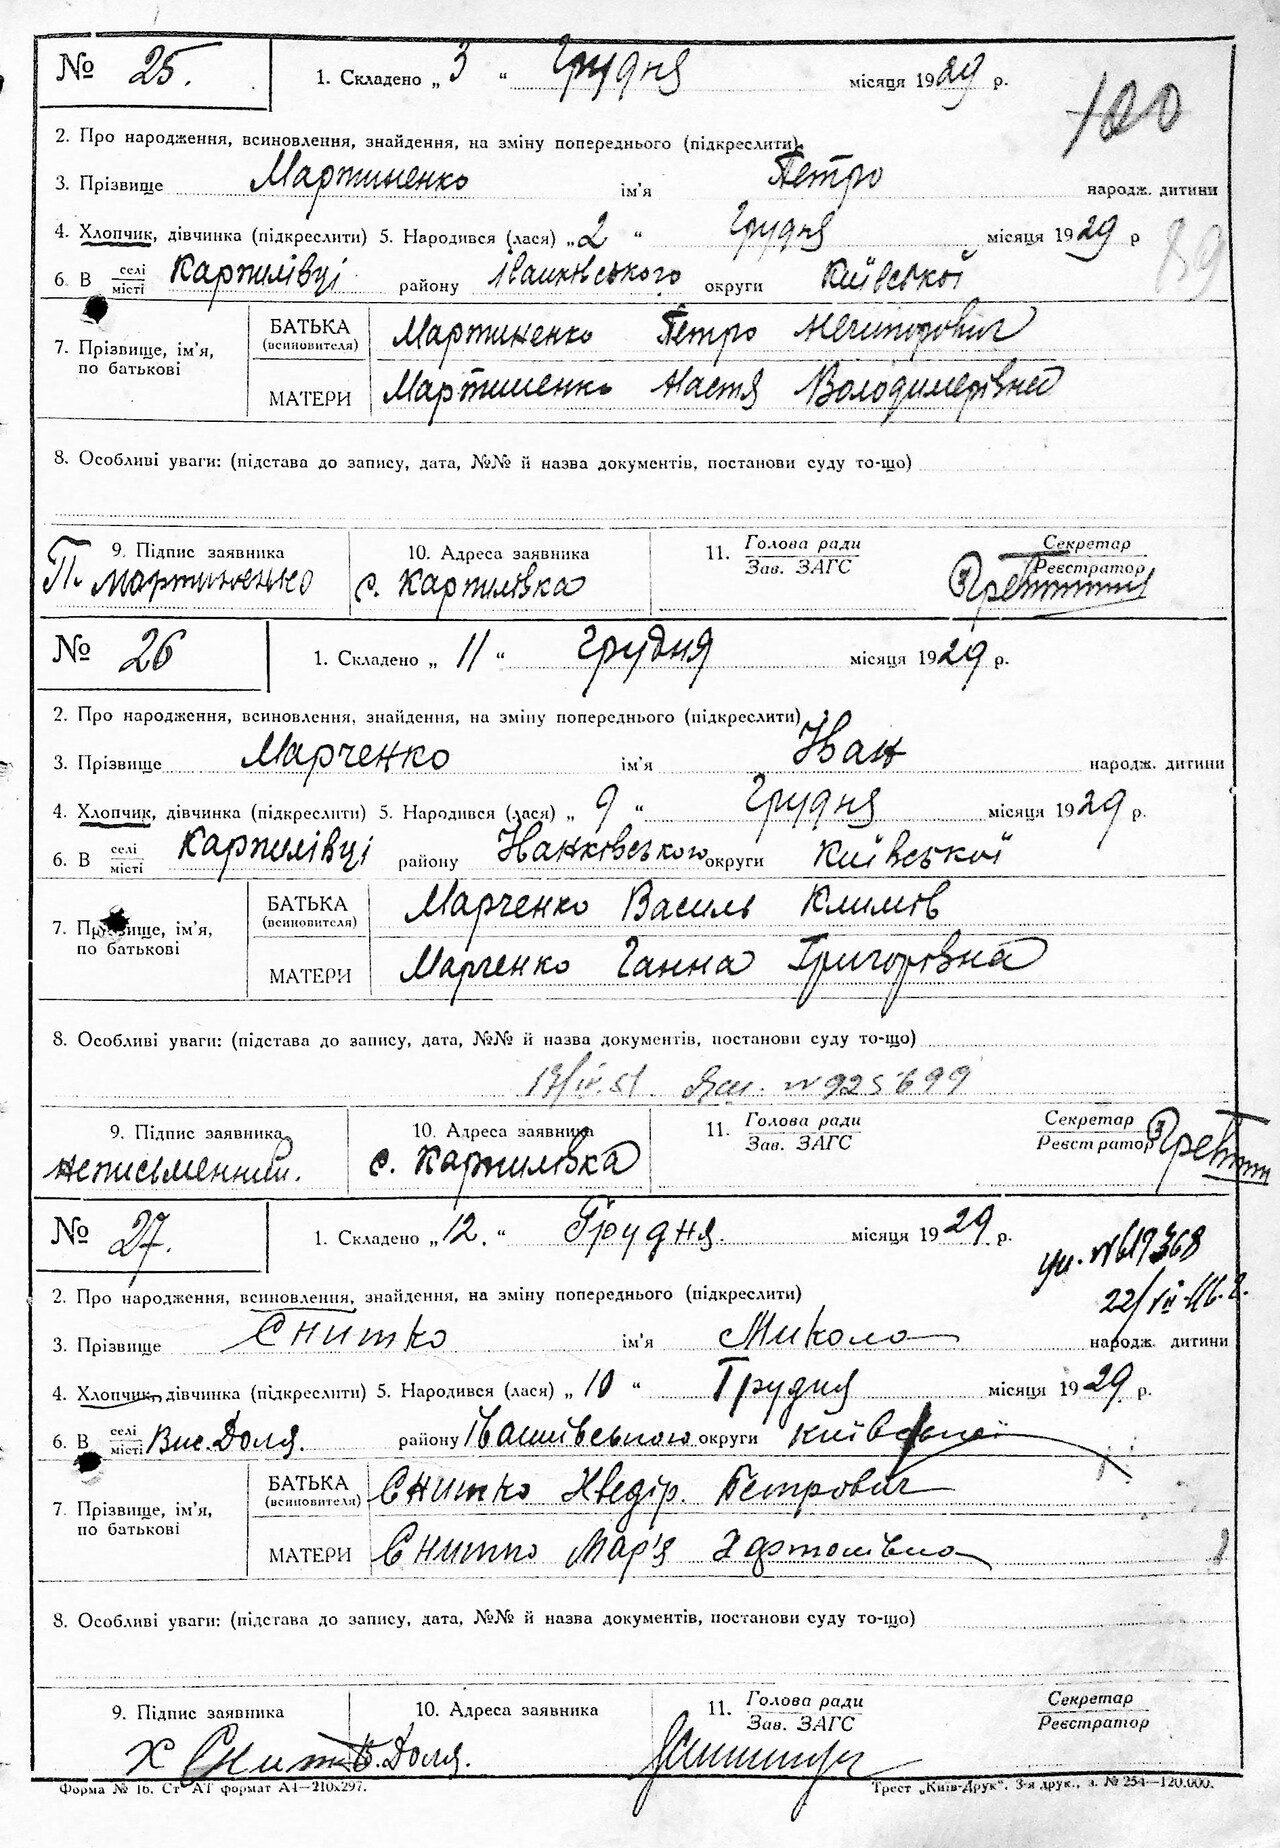 № 25. 1. Складено „ 3 “ Грудня місяця 1929 р.
100
2. Про народження, всиновлення, знайдення, на зміну попереднього (підкреслити)
3. Прізвище Мартиненко ім'я Петро народж. дитини
4. Хлопчик, дівчинка (підкреслити) 5. Народився (лася) „ 2 “ Грудня місяця 1929 р
89
6. В селі місті Карпилівці району Іванківського округи Київської
7. Прізвище, ім'я, по батькові
БАТЬКА (всиновителя) Мартиненко Петро Нечипорович
МАТЕРИ Мартиненко Настя Володимерівна
8. Особливі уваги: (підстава до запису, дата, №№ й назва документів, постанови суду то-що)
9. Підпис заявника 10. Адреса заявника 11. Голова ради Зав. ЗАГС Секретар Реєстратор
П. Мартиненко с. Карпилівка
№ 26 1. Складено „ 11 “ Грудня місяця 1929 р.
2. Про народження, всиновлення, знайдення, на зміну попереднього (підкреслити)
3. Прізвище Марченко ім'я Іван народж. дитини
4. Хлопчик, дівчинка (підкреслити) 5. Народився (лася) „ 9 “ Грудня місяця 1929 р.
6. В селі місті Карпилівці району Іванківського округи Київської
7. Прізвище, ім'я, по батькові
БАТЬКА (всиновителя) Марченко Василь Климів
МАТЕРИ Марченко Ганна Григорівна
8. Особливі уваги: (підстава до запису, дата, №№ й назва документів, постанови суду то-що)
№ 925699
9. Підпис заявника 10. Адреса заявника 11. Голова ради Зав. ЗАГС Секретар Реєстратор
неписьменний. с. Карпилівка
№ 27. 1. Складено „ 12. “ Грудня. місяця 1929 р.
№ 619368
2. Про народження, всиновлення, знайдення, на зміну попереднього (підкреслити)
3. Прізвище Снитко ім'я Микола народж. дитини
4. Хлопчик, дівчинка (підкреслити) 5. Народився (лася) „ 10 “ Грудня місяця 1929 р.
6. В селі місті Вис. Доля. району округи Київської
7. Прізвище, ім'я, по батькові
БАТЬКА (всиновителя) Снитко Хведір. Петрович
МАТЕРИ Снитко Мар'я
8. Особливі уваги: (підстава до запису, дата, №№ й назва документів, постанови суду то-що)
9. Підпис заявника 10. Адреса заявника 11. Голова ради Зав. ЗАГС Секретар Реєстратор
Х Снит В. Доля.
Форма № 16. Ст АТ формат А4—210х297. Трест „Київ-Друк“. 3-я друк., з. № 254—120.000.